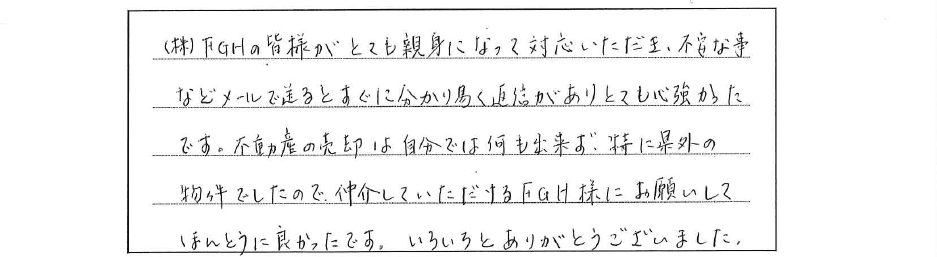 (株)FGHの皆様がとても親身になって対応いただき、不安な事
などメールで送るとすぐに分かり易く返信がありとても心強かった
です。不動産の売却は自分では何も出来ず、特に県外の
物件でしたので、仲介していただけるFGH様にお願いして
ほんとうに良かったです。いろいろとありがとうございました。